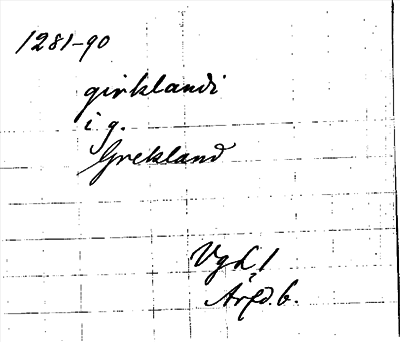 1281-90
girklandi
i. g.
Grekland
VgL 1
Ärfd. b.